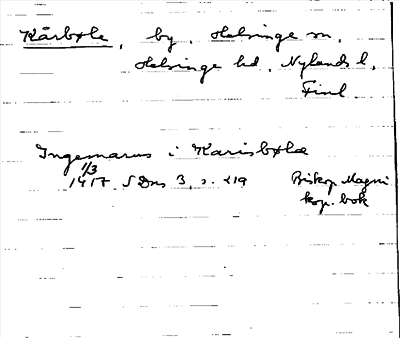 Kårböle, by, Helsinge sn,
Helsinge hd, Nylands l,
Finl.
Ingemarus i Karisböle
1/3
1417 SDns 3, s. 219 Biskop Magni
kop. bok